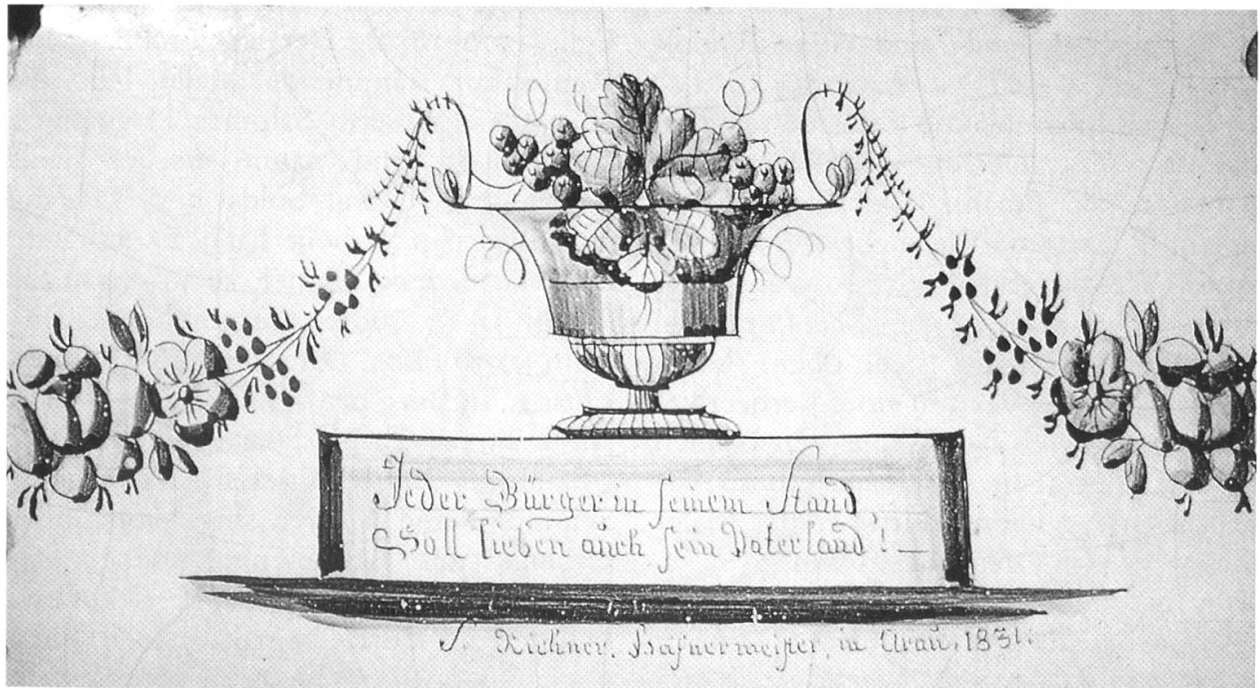 Jeder Bürger in seinem Stand,
Soll lieben auch sein Vaterland! –
J. Kichner, Hafnermeister, in Arau, 1831.